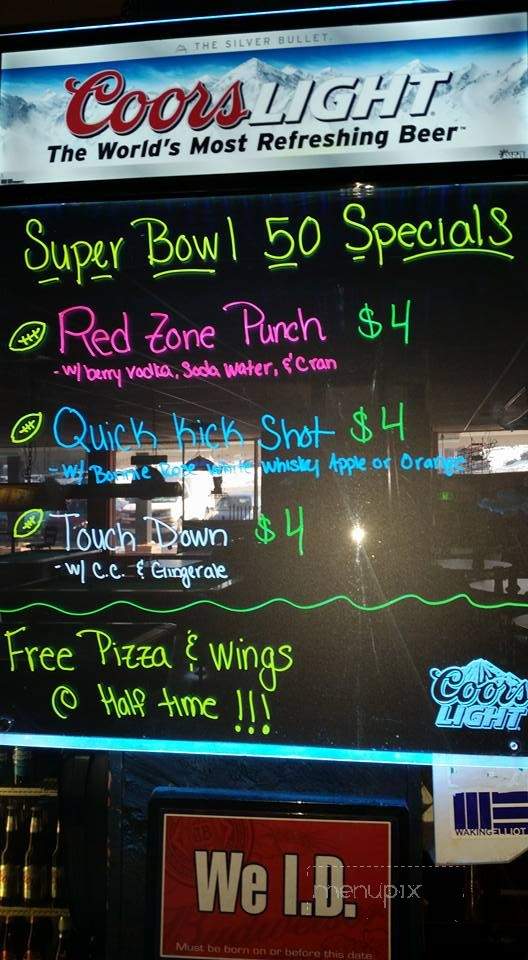 THE SILVER BULLET.
Coors LIGHT
The World's Most Refreshing Beer™
Super Bowl 50 Specials
Red Zone Punch $4
- w/ berry vodka, Soda Water, & Cran
Quick Kick Shot $4
- w/ Bonnie Rose White Whiskey Apple or Orange
Touch Down $4
- w/ C.C. & Gingerale
Free Pizza & Wings
@ Half time !!!
Coors
LIGHT
WAKINGELLIOT
We I.D.
menupix
Must be born on or before this date